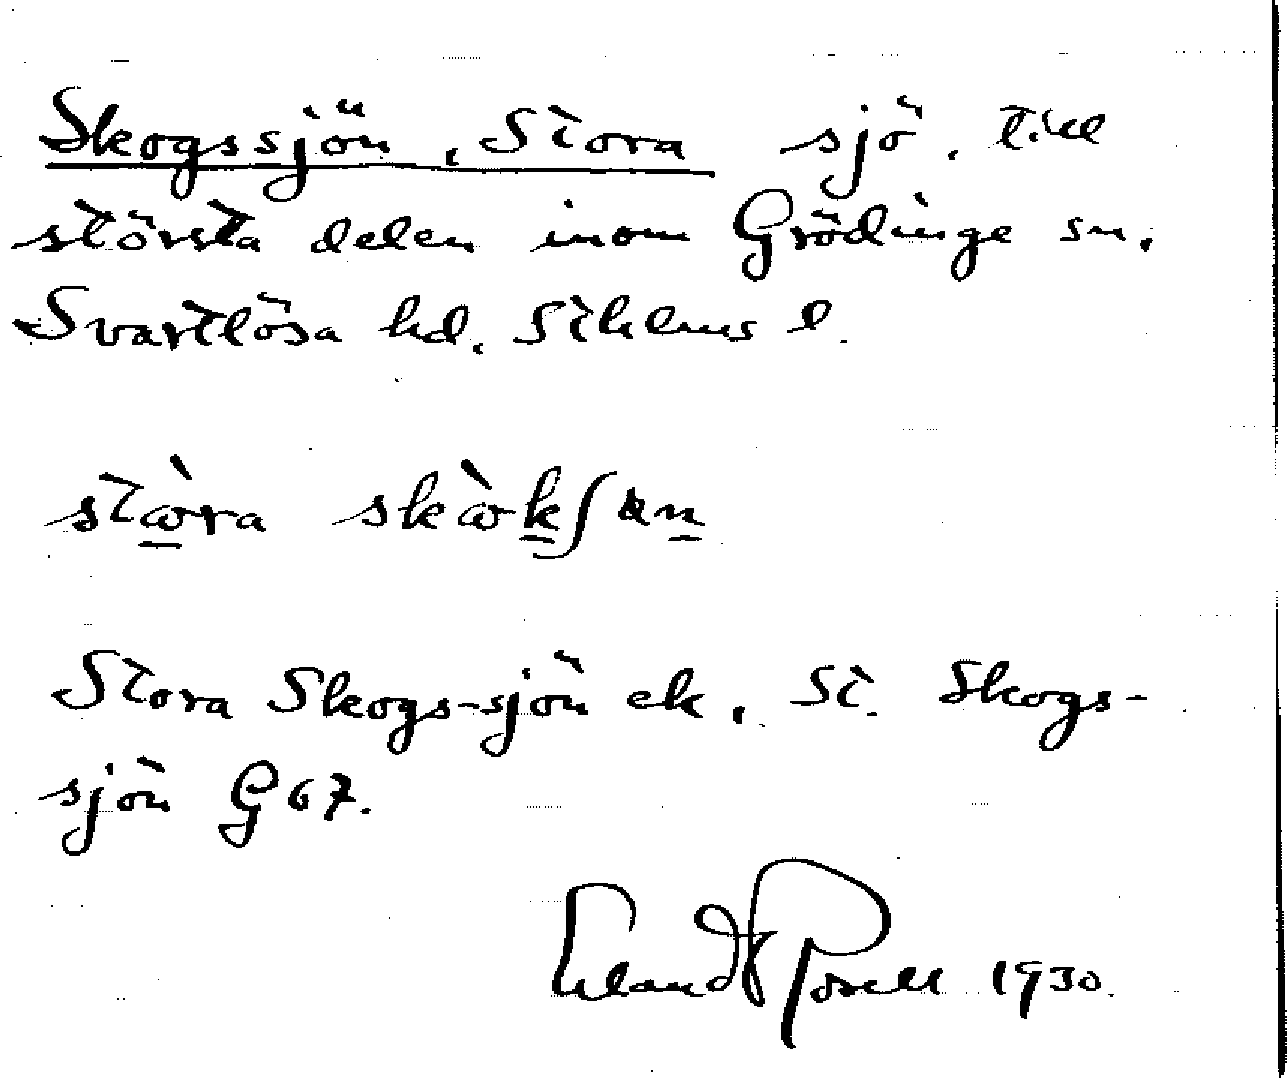 Skogssjön, Stora sjö, till
största delen inom Grödinge sn.
Svartlösa hd. Sthlms l.
Stora Skogs-sjön ek, St. Skogs-
sjön G 67.
Erland Rosell 1930.